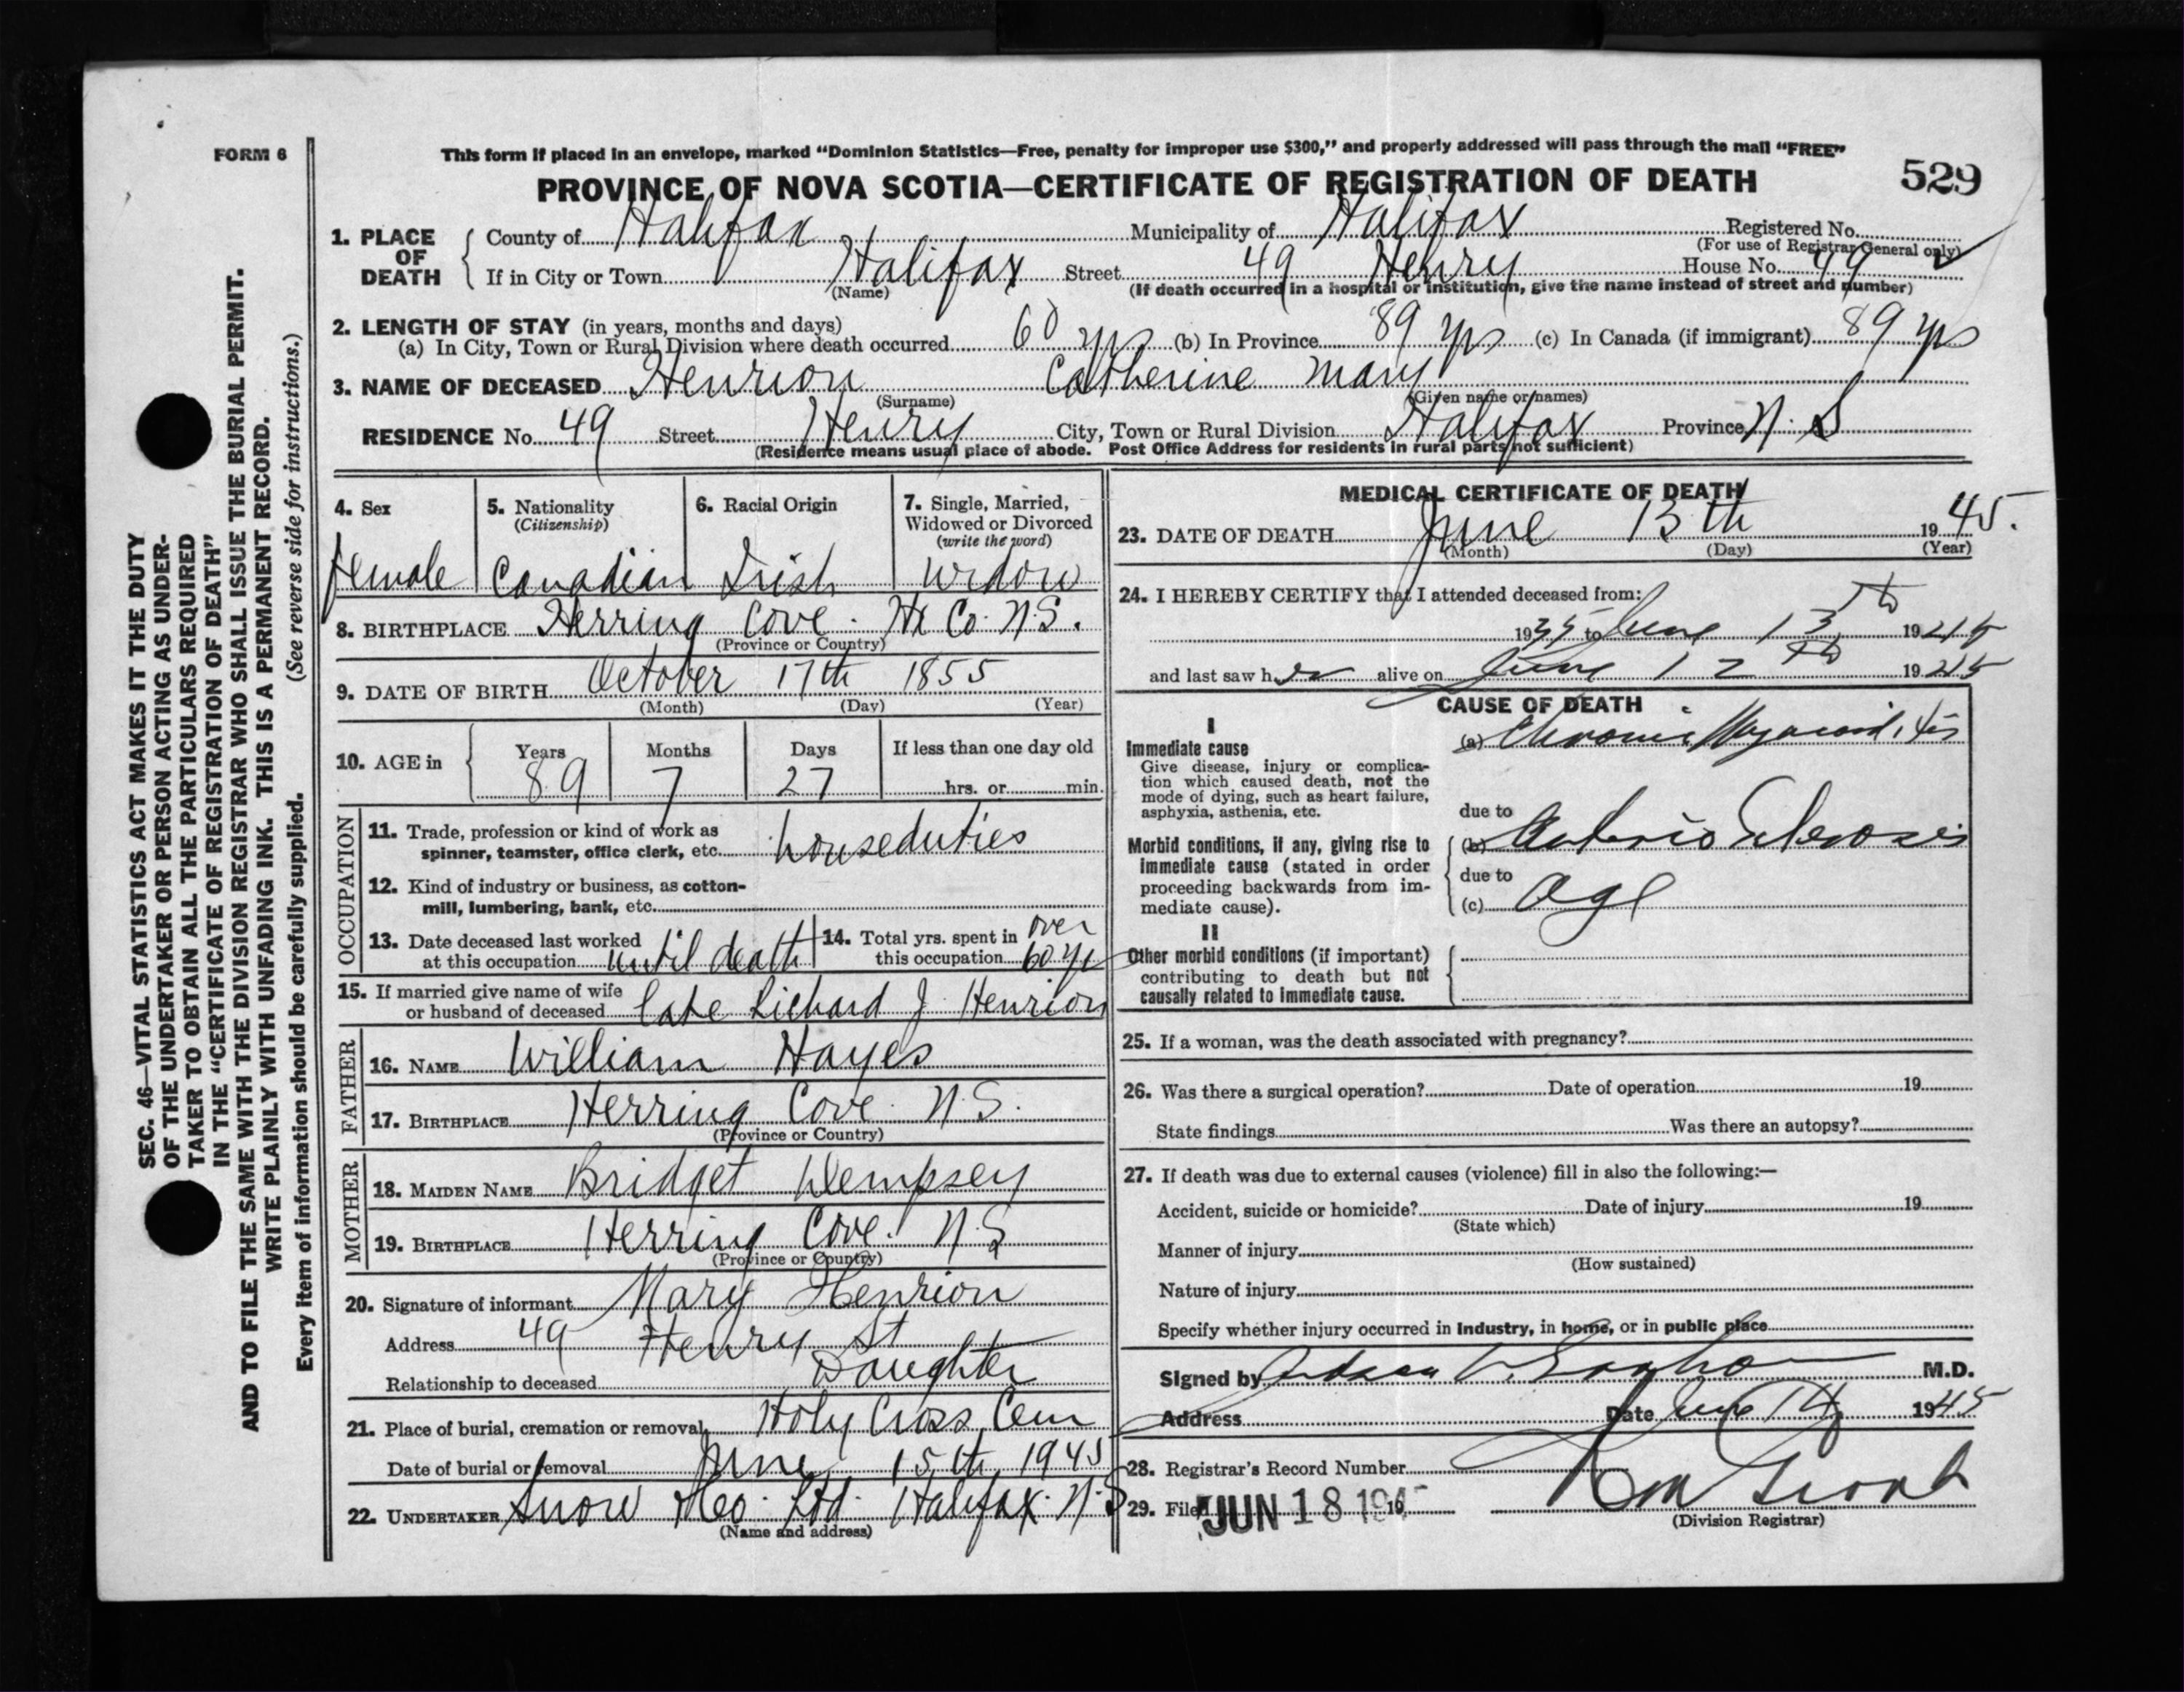 FORM 6
This form if placed in an envelope, marked “Dominion Statistics—Free, penalty for improper use $300,” and properly addressed will pass through the mail “FREE”
PROVINCE OF NOVA SCOTIA—CERTIFICATE OF REGISTRATION OF DEATH
529
1. PLACE OF DEATH
County of Halifax Municipality of Halifax Registered No.
(For use of Registrar General only)
If in City or Town Halifax Street 49 Henry House No. 49
(Name) (If death occurred in a hospital or institution, give the name instead of street and number)
2. LENGTH OF STAY (in years, months and days)
(a) In City, Town or Rural Division where death occurred 60 yrs (b) In Province 89 yrs (c) In Canada (if immigrant) 89 yrs
3. NAME OF DECEASED Henrion Catherine Mary
(Surname) (Given name or names)
RESIDENCE No. 49 Street Henry City, Town or Rural Division Halifax Province N.S
(Residence means usual place of abode. Post Office Address for residents in rural parts not sufficient)
4. Sex
female
5. Nationality
(Citizenship)
Canadian
6. Racial Origin
Irish
7. Single, Married,
Widowed or Divorced
(write the word)
widow
8. BIRTHPLACE Herring Cove. Hx Co. N.S.
(Province or Country)
9. DATE OF BIRTH October 17th 1855
(Month) (Day) (Year)
10. AGE in
Years Months Days If less than one day old
89 7 27 hrs. or min.
OCCUPATION
11. Trade, profession or kind of work as
spinner, teamster, office clerk, etc. houseduties
12. Kind of industry or business, as cotton-
mill, lumbering, bank, etc.
13. Date deceased last worked
at this occupation until death
14. Total yrs. spent in over
this occupation 60 yr
15. If married give name of wife
or husband of deceased late Richard J Henrion
FATHER
16. NAME William Hayes
17. BIRTHPLACE Herring Cove N.S.
(Province or Country)
MOTHER
18. MAIDEN NAME Bridget Dempsey
19. BIRTHPLACE Herring Cove. N.S
(Province or Country)
20. Signature of informant Mary Henrion
Address 49 Henry St
Relationship to deceased Daughter
21. Place of burial, cremation or removal Holy Cross Cem
Date of burial or removal June 15th 1945
22. UNDERTAKER Snow & Co. Ltd. Halifax. N.S
(Name and address)
MEDICAL CERTIFICATE OF DEATH
23. DATE OF DEATH June 13th 1945.
(Month) (Day) (Year)
24. I HEREBY CERTIFY that I attended deceased from:
1935 to June 13th 1945
and last saw her alive on June 12th 1945
CAUSE OF DEATH
I
Immediate cause
Give disease, injury or complica-
tion which caused death, not the
mode of dying, such as heart failure,
asphyxia, asthenia, etc.
(a) Chronic Myocarditis
due to
Morbid conditions, if any, giving rise to
immediate cause (stated in order
proceeding backwards from im-
mediate cause).
(b) Arterio Sclerosis
due to
(c) Age
II
Other morbid conditions (if important)
contributing to death but not
causally related to immediate cause.
25. If a woman, was the death associated with pregnancy?
26. Was there a surgical operation? Date of operation 19
State findings Was there an autopsy?
27. If death was due to external causes (violence) fill in also the following:—
Accident, suicide or homicide? Date of injury 19
(State which)
Manner of injury
(How sustained)
Nature of injury
Specify whether injury occurred in industry, in home, or in public place
Signed by M.D.
Address Date June 14 1945
28. Registrar's Record Number
29. Filed JUN 18 194
(Division Registrar)
SEC. 46—VITAL STATISTICS ACT MAKES IT THE DUTY
OF THE UNDERTAKER OR PERSON ACTING AS UNDER-
TAKER TO OBTAIN ALL THE PARTICULARS REQUIRED
IN THE “CERTIFICATE OF REGISTRATION OF DEATH”
AND TO FILE THE SAME WITH THE DIVISION REGISTRAR WHO SHALL ISSUE THE BURIAL PERMIT.
WRITE PLAINLY WITH UNFADING INK. THIS IS A PERMANENT RECORD.
Every item of information should be carefully supplied. (See reverse side for instructions.)